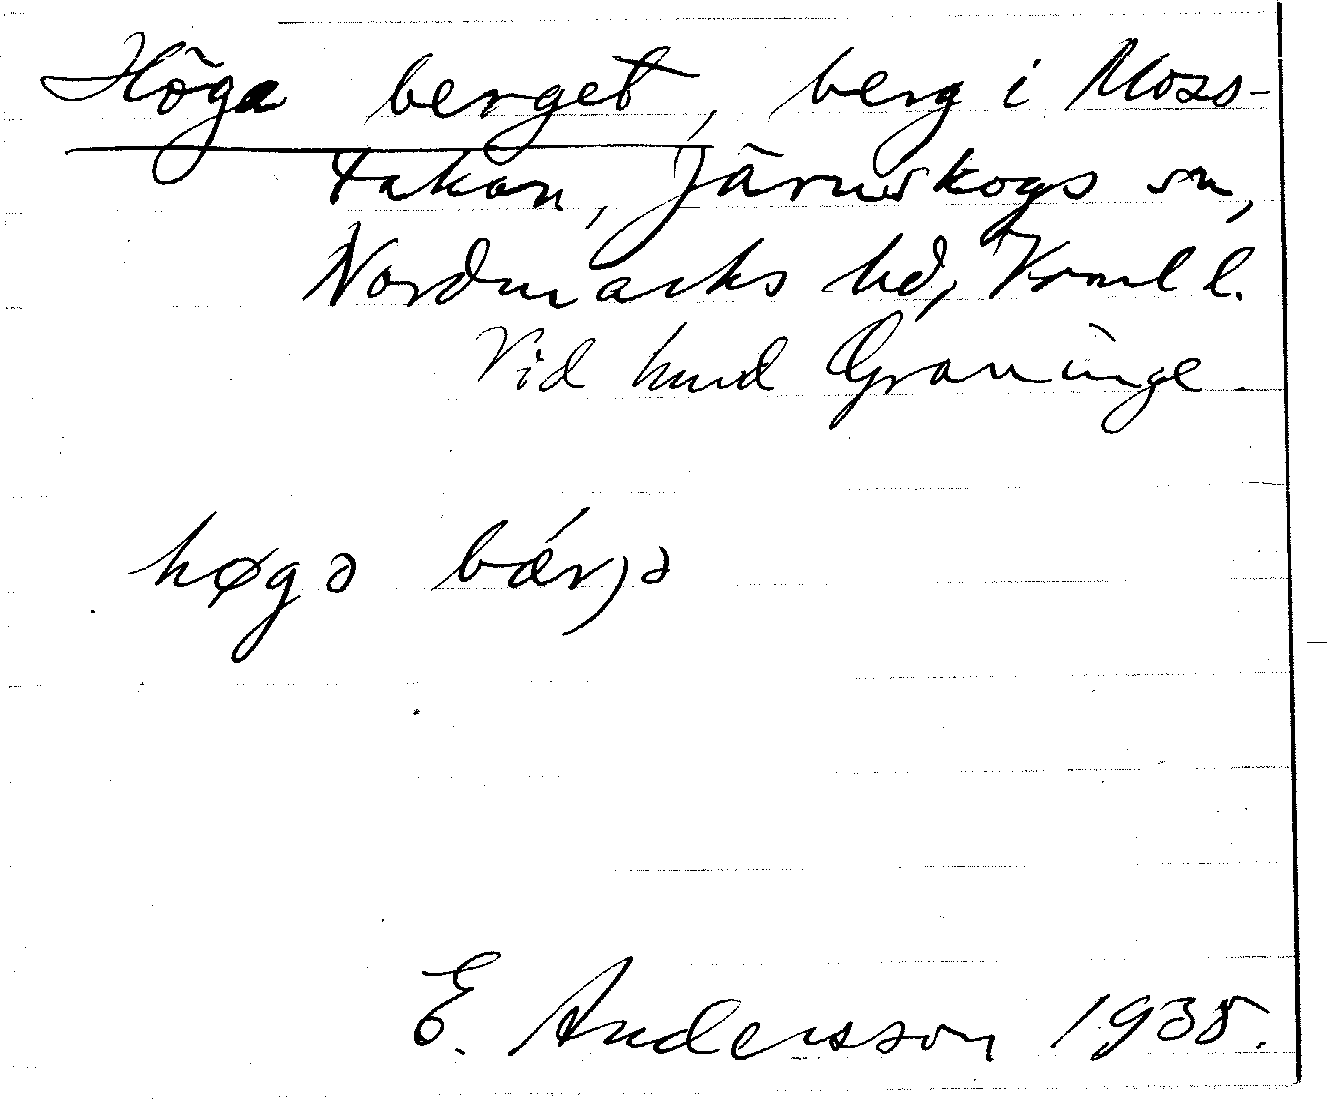 Höga berget, berg i Moss-
takan, Järnskogs sn,
Nordmarks hd, Vrml l.
Vid hmd Graninge
høgə bǽrjə
E. Andersson 1935.